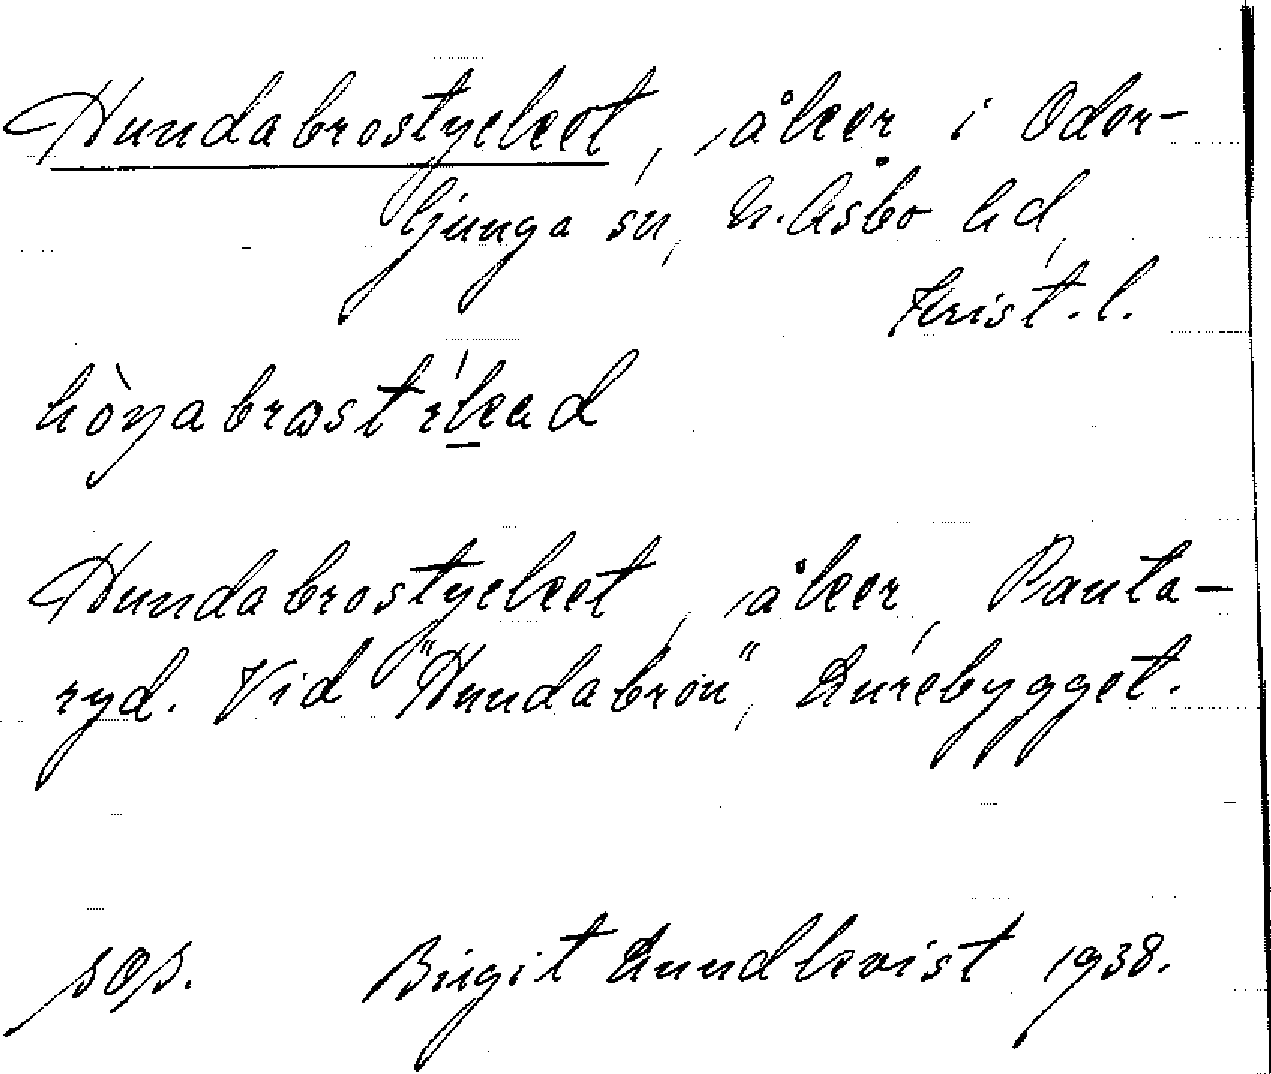 Hundabrostycket, åker i Oder-
ljunga sn, N. Åsbo hd,
Krist. l.
hònabrostýkad
Hundabrostycket, åker, Panta-
ryd. Vid "Hundabron", Lurebygget.
sOs. Birgit Lundkvist 1938.